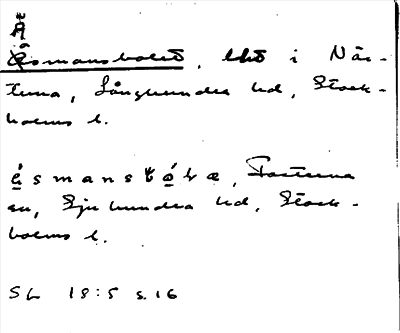 Å
Åsmansbolet, lht i När-
tuna, Långhundra hd, Stock-
holms l.
ésmanstólæ, Fasterna
sn, Sjuhundra hd, Stock-
holms l.
SL 18:5 s.16